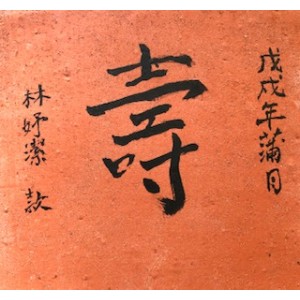 戊戌年蒲月
壽
林妤潔 款